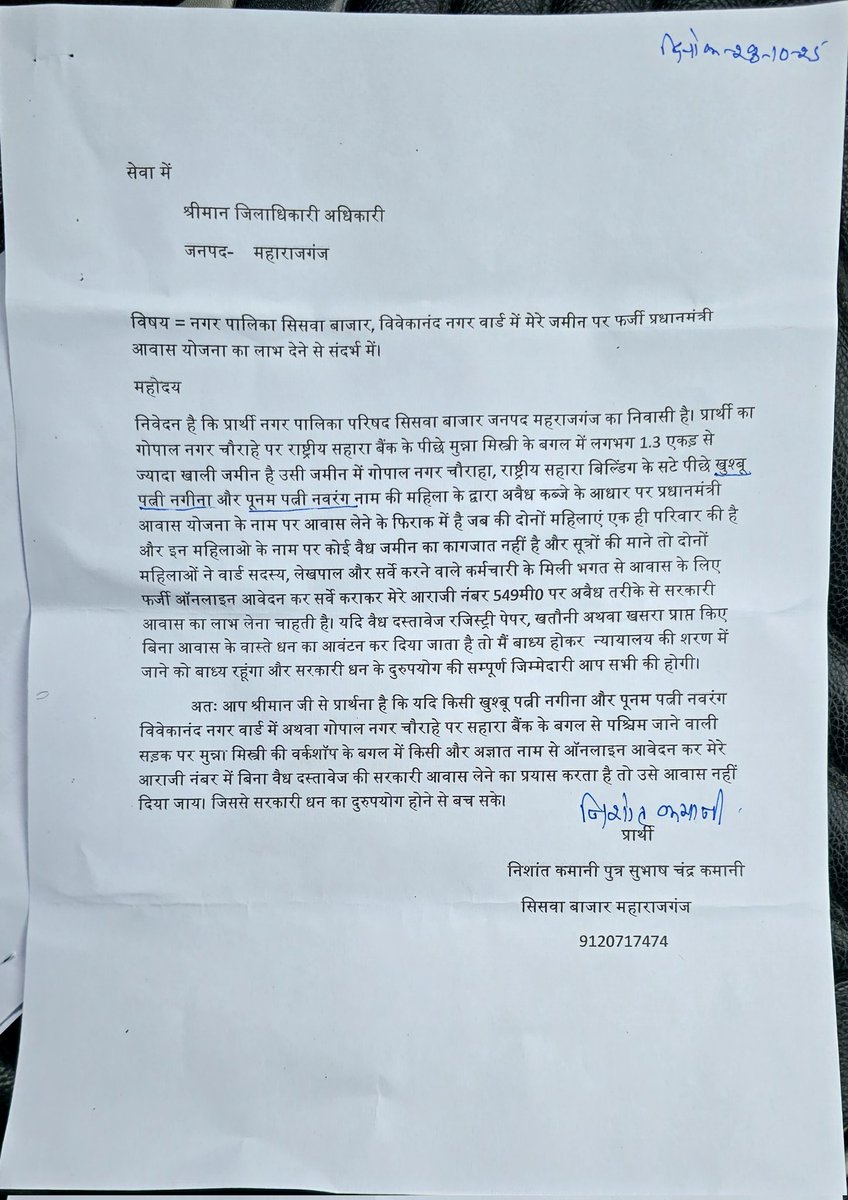 दिनांक-28-10-25
सेवा में
श्रीमान जिलाधिकारी अधिकारी
जनपद- महाराजगंज
विषय = नगर पालिका सिसवा बाजार, विवेकानंद नगर वार्ड में मेरे जमीन पर फर्जी प्रधानमंत्री
आवास योजना का लाभ देने से संदर्भ में।
महोदय
निवेदन है कि प्रार्थी नगर पालिका परिषद सिसवा बाजार जनपद महराजगंज का निवासी है। प्रार्थी का
गोपाल नगर चौराहे पर राष्ट्रीय सहारा बैंक के पीछे मुन्ना मिस्त्री के बगल में लगभग 1.3 एकड़ से
ज्यादा खाली जमीन है उसी जमीन में गोपाल नगर चौराहा, राष्ट्रीय सहारा बिल्डिंग के सटे पीछे खुश्बू
पत्नी नगीना और पूनम पत्नी नवरंग नाम की महिला के द्वारा अवैध कब्जे के आधार पर प्रधानमंत्री
आवास योजना के नाम पर आवास लेने के फिराक में है जब की दोनों महिलाएं एक ही परिवार की है
और इन महिलाओ के नाम पर कोई वैध जमीन का कागजात नहीं है और सूत्रों की माने तो दोनों
महिलाओं ने वार्ड सदस्य, लेखपाल और सर्वे करने वाले कर्मचारी के मिली भगत से आवास के लिए
फर्जी ऑनलाइन आवेदन कर सर्वे कराकर मेरे आराजी नंबर 549मी0 पर अवैध तरीके से सरकारी
आवास का लाभ लेना चाहती है। यदि वैध दस्तावेज रजिस्ट्री पेपर, खतौनी अथवा खसरा प्राप्त किए
बिना आवास के वास्ते धन का आवंटन कर दिया जाता है तो मैं बाध्य होकर न्यायालय की शरण में
जाने को बाध्य रहूंगा और सरकारी धन के दुरुपयोग की सम्पूर्ण जिम्मेदारी आप सभी की होगी।
अतः आप श्रीमान जी से प्रार्थना है कि यदि किसी खुश्बू पत्नी नगीना और पूनम पत्नी नवरंग
विवेकानंद नगर वार्ड में अथवा गोपाल नगर चौराहे पर सहारा बैंक के बगल से पश्चिम जाने वाली
सड़क पर मुन्ना मिस्त्री की वर्कशॉप के बगल में किसी और अज्ञात नाम से ऑनलाइन आवेदन कर मेरे
आराजी नंबर में बिना वैध दस्तावेज की सरकारी आवास लेने का प्रयास करता है तो उसे आवास नहीं
दिया जाय। जिससे सरकारी धन का दुरुपयोग होने से बच सके।
निशांत कमानी
प्रार्थी
निशांत कमानी पुत्र सुभाष चंद्र कमानी
सिसवा बाजार महाराजगंज
9120717474